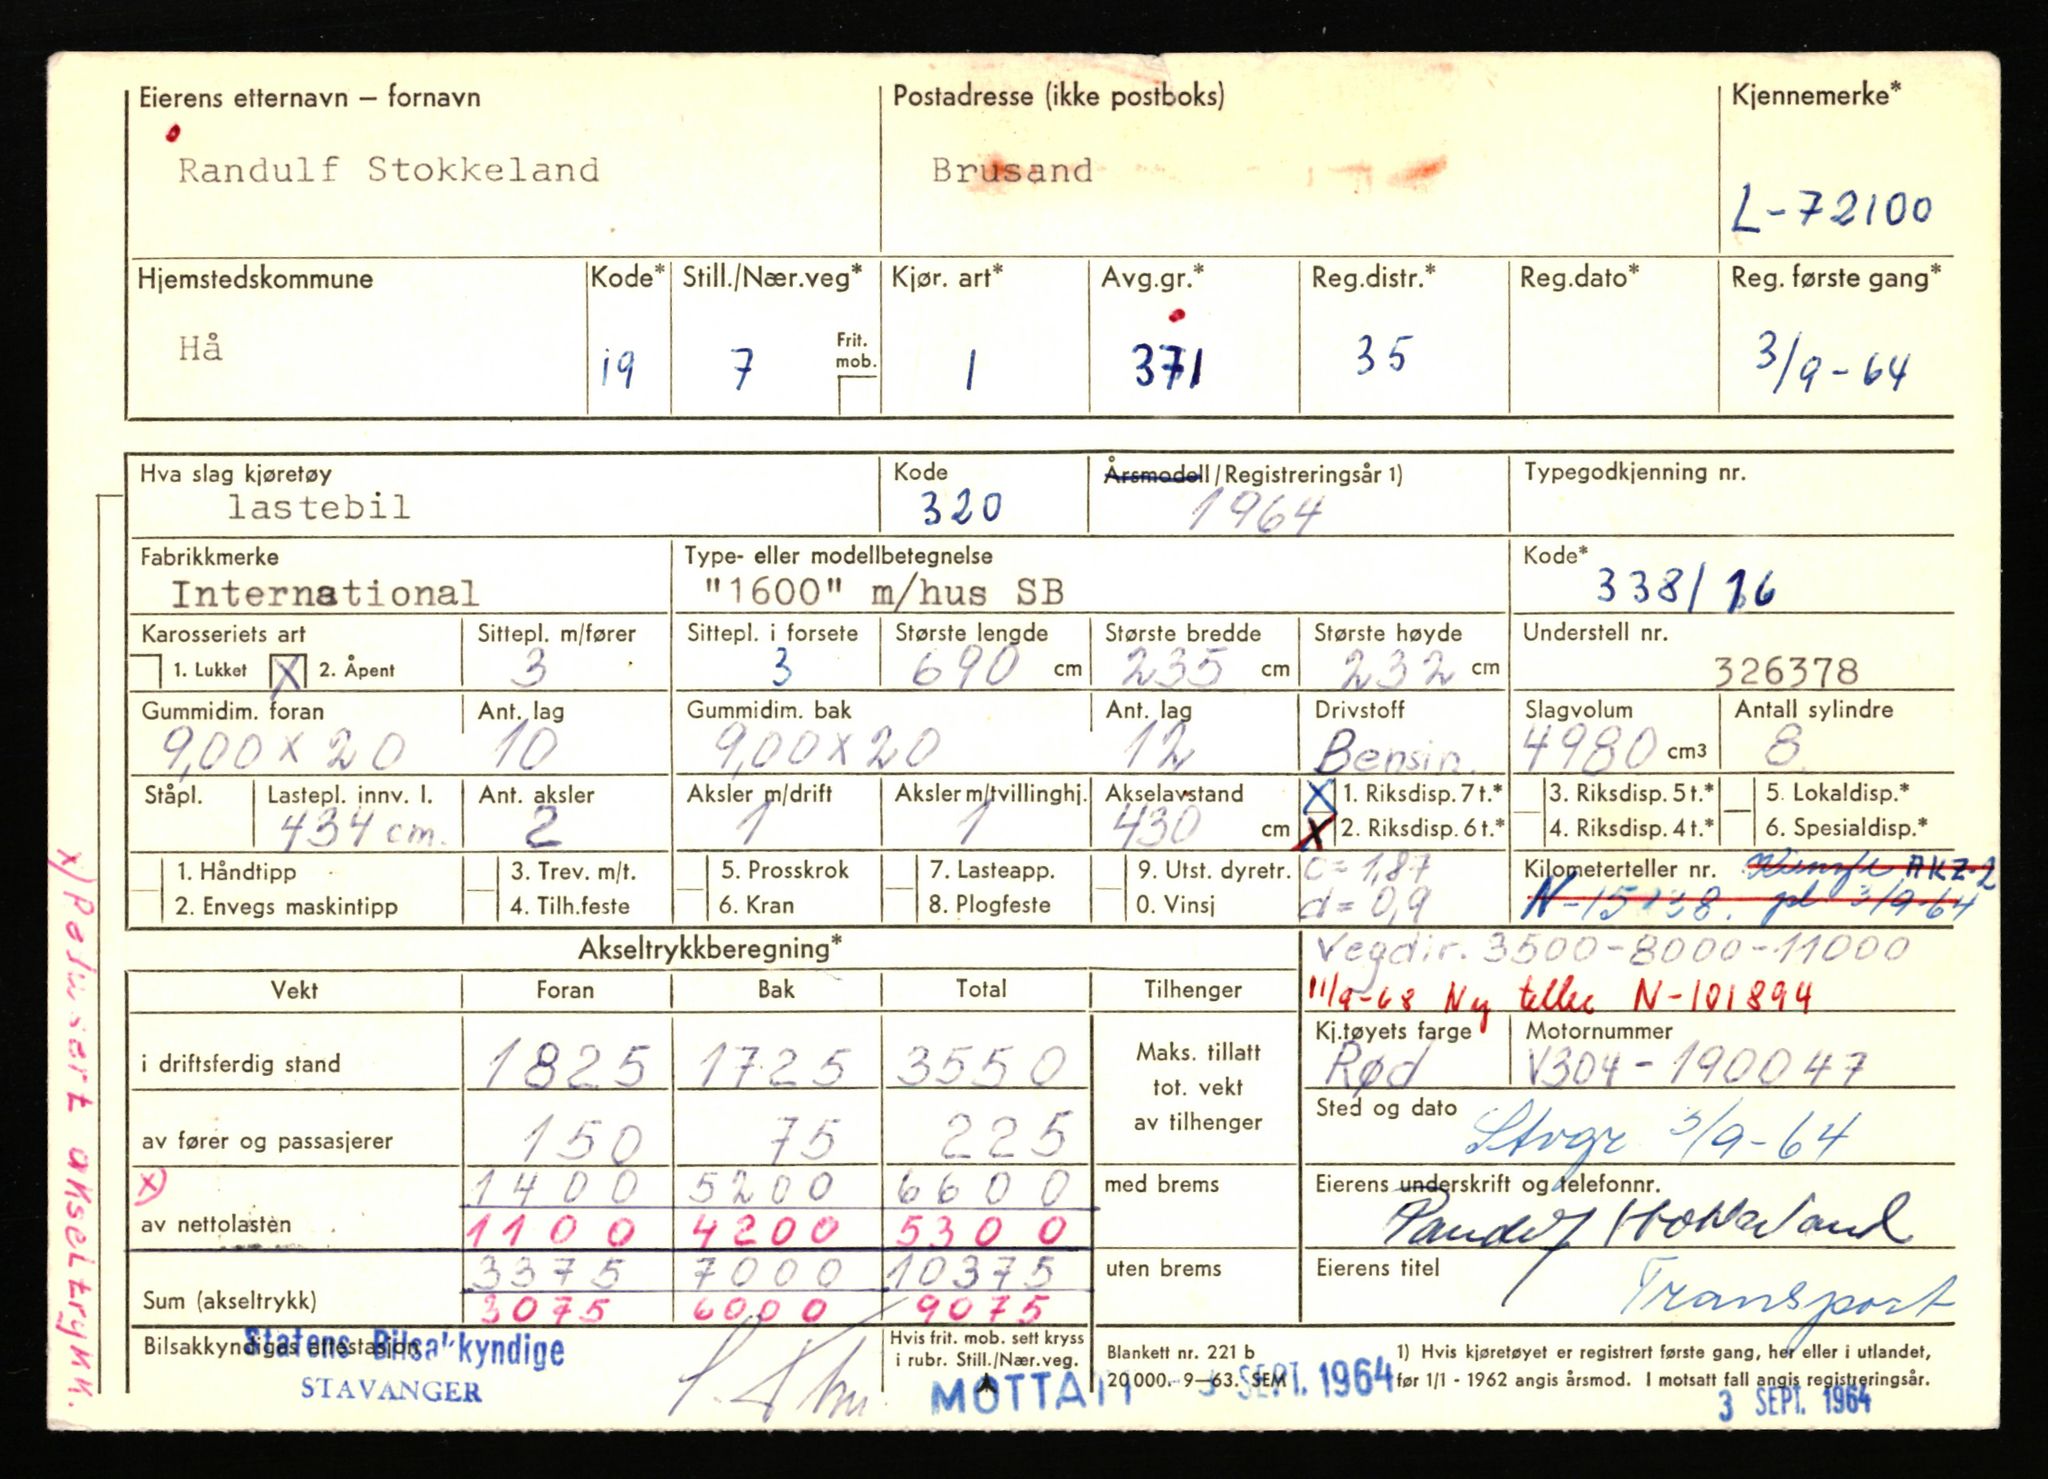 Eierens etternavn – fornavn Postadresse (ikke postboks) Kjennemerke*
Randulf Stokkeland Brusand
L-72100
Hjemstedskommune Kode* Still./Nær.veg* Kjør. art* Avg.gr.* Reg.distr.* Reg.dato* Reg. første gang*
Hå 19 7 Frit. mob. 1 371 35 3/9-64
Hva slag kjøretøy Kode Årsmodell/Registreringsår 1) Typegodkjenning nr.
lastebil 320 1964
Fabrikkmerke Type- eller modellbetegnelse Kode*
International "1600" m/hus SB 338/16
Karosseriets art Sittepl. m/fører Sittepl. i forsete Største lengde Største bredde Største høyde Understell nr.
1. Lukket X 2. Åpent 3 3 690 cm 235 cm 232 cm 326378
Gummidim. foran Ant. lag Gummidim. bak Ant. lag Drivstoff Slagvolum Antall sylindre
9,00 x 20 10 9,00 x 20 12 Bensin. 4980 cm3 8
Ståpl. Lastepl. innv. l. Ant. aksler Aksler m/drift Aksler m/tvillinghj. Akselavstand X 1. Riksdisp. 7 t.* 3. Riksdisp. 5 t.* 5. Lokaldisp.*
434 cm. 2 1 1 430 cm X 2. Riksdisp. 6 t.* 4. Riksdisp. 4 t.* 6. Spesialdisp.*
1. Håndtipp 3. Trev. m/t. 5. Prosskrok 7. Lasteapp. 9. Utst. dyretr. c = 1,87 Kilometerteller nr. AKZ-2
2. Envegs maskintipp 4. Tilh.feste 6. Kran 8. Plogfeste 0. Vinsj d = 0,9 pl 3/9-64
Akseltrykkberegning* Vegdir. 3500-8000-11000
Vekt Foran Bak Total Tilhenger 11/9-68 Ny teller N-101894
Kj.tøyets farge Motornummer
i driftsferdig stand 1825 1725 3550 Maks. tillatt tot. vekt av tilhenger Rød V304-190047
Sted og dato
av fører og passasjerer 150 75 225 Stvgr 3/9-64
x) 1400 5200 6600 med brems Eierens underskrift og telefonnr.
av nettolasten 1100 4200 5300 Randulf Stokkeland
3375 7000 10375 uten brems Eierens titel
Sum (akseltrykk) 3075 6000 9075 Transport
Bilsakkyndiges attestasjon Hvis frit. mob. sett kryss i rubr. Still./Nær.veg. Blankett nr. 221 b 1) Hvis kjøretøyet er registrert første gang, her eller i utlandet,
20 000. 9–63. SEM før 1/1 - 1962 angis årsmod. I motsatt fall angis registreringsår.
Statens Bilsakkyndige
STAVANGER
MOTTATT 3 SEPT. 1964
3 SEPT. 1964
x) Redusert akseltrykk.